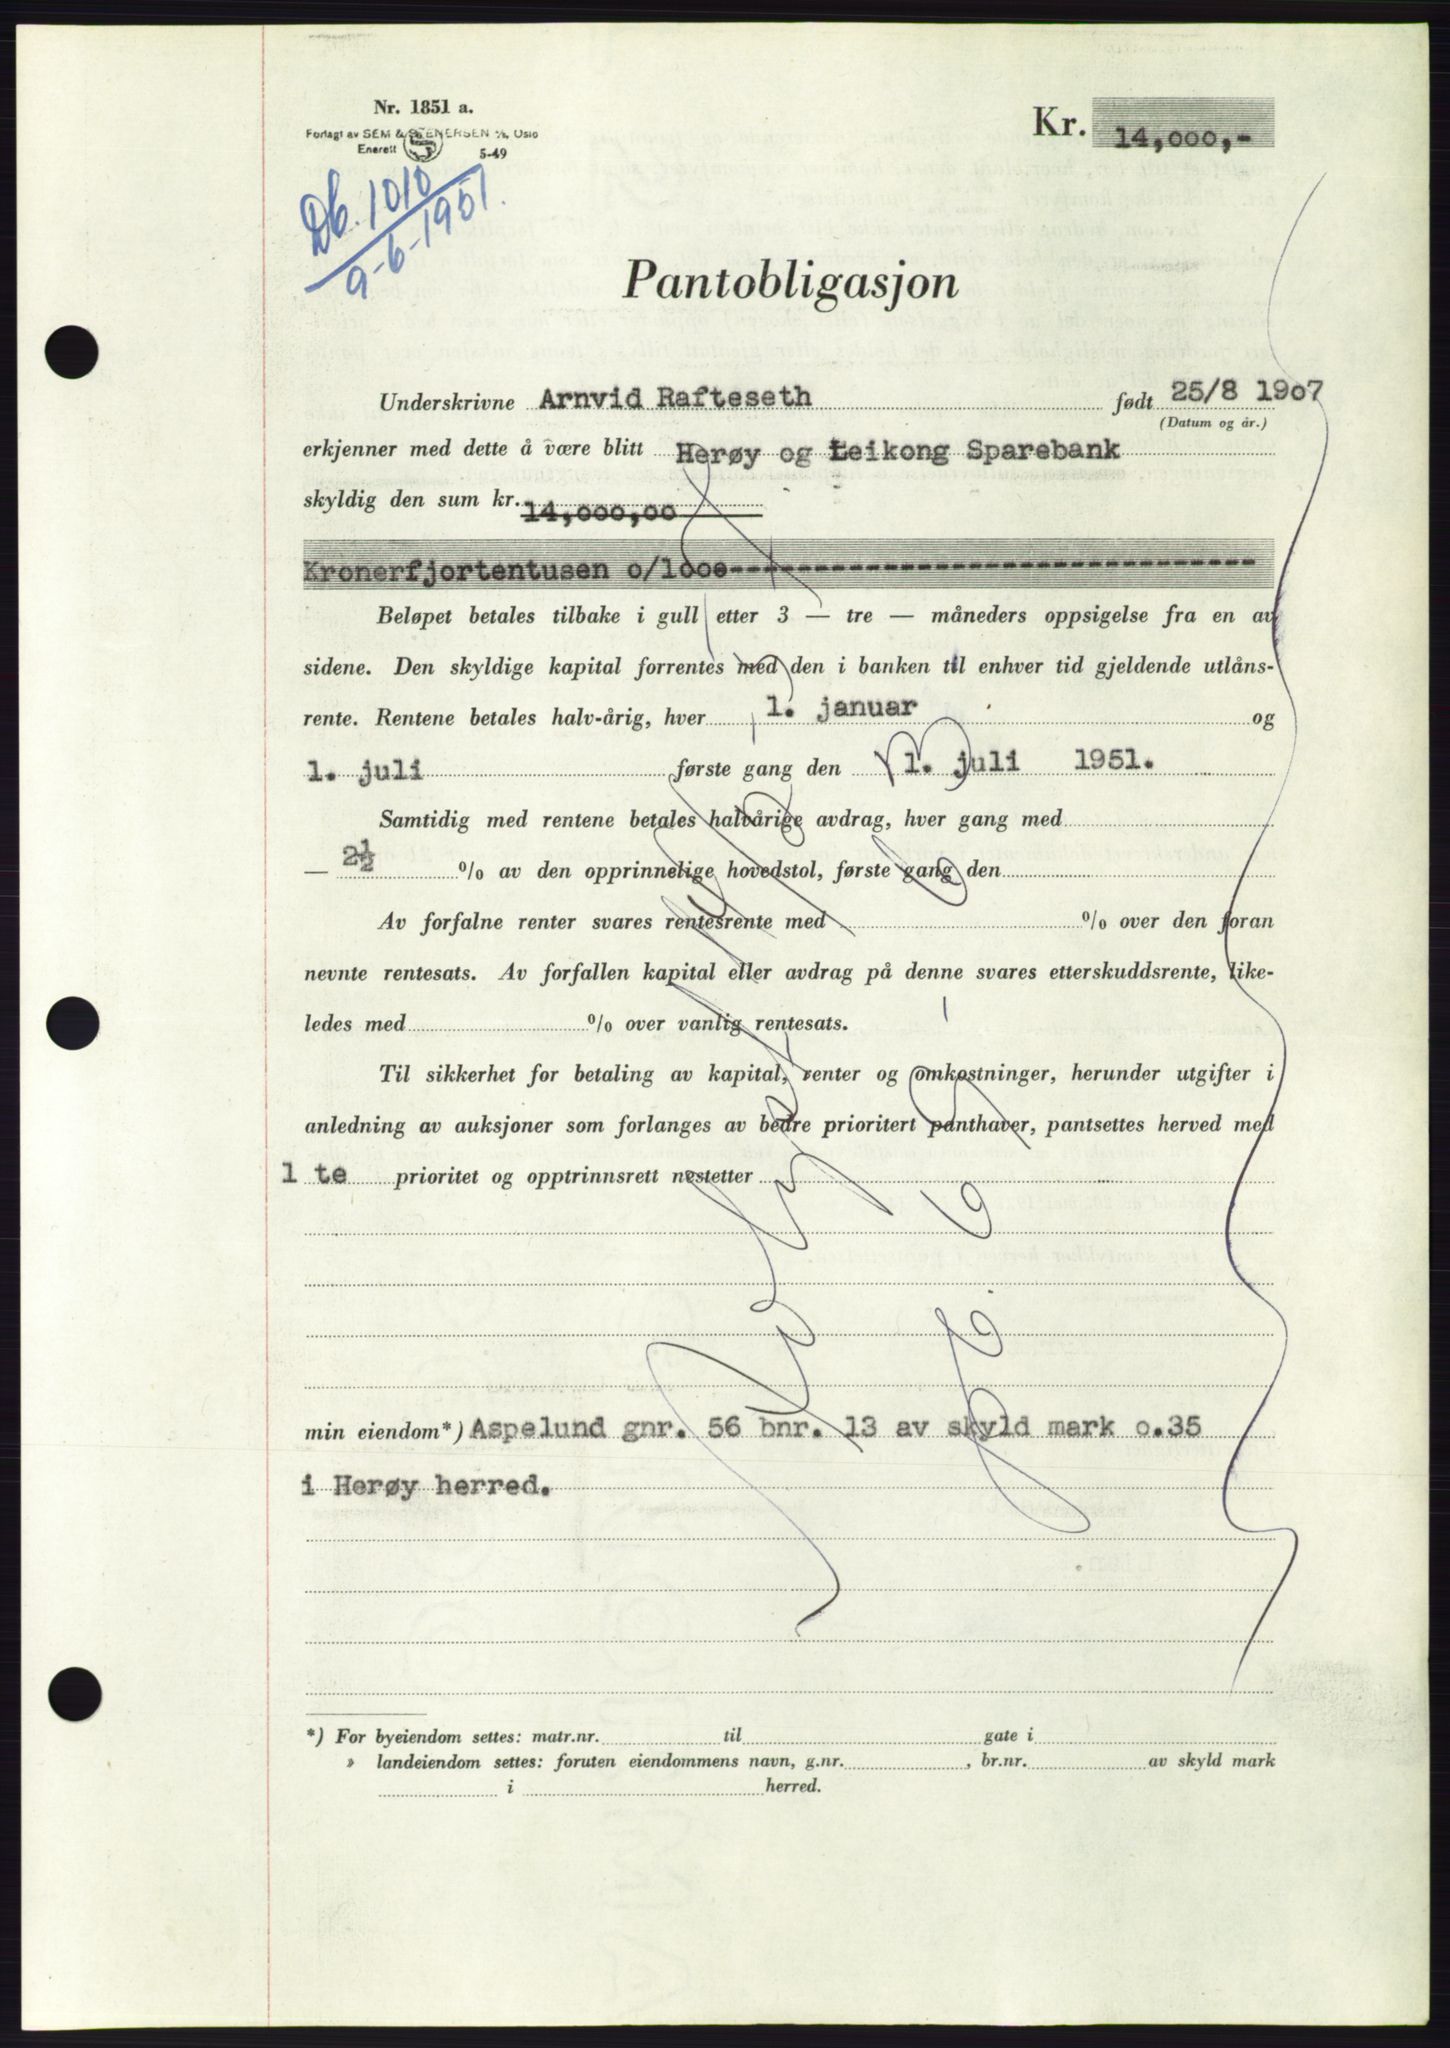 Nr. 1851 a.
Forlagt av SEM & STENERSEN A/S, Oslo
Enerett 5-49
Kr. 14,000,-
Db. 1010
9-6-1951.
Pantobligasjon
Underskrivne Arnvid Rafteseth født 25/8 1907
(Datum og år.)
erkjenner med dette å være blitt Herøy og Leikong Sparebank
skyldig den sum kr. 14,000,00
Kronerfjortentusen o/1ooe-----------------------------
Beløpet betales tilbake i gull etter 3 — tre — måneders oppsigelse fra en av
sidene. Den skyldige kapital forrentes med den i banken til enhver tid gjeldende utlåns-
rente. Rentene betales halv-årig, hver 1. januar og
1. juli første gang den 1. juli 1951.
Samtidig med rentene betales halvårige avdrag, hver gang med
— 2½ % av den opprinnelige hovedstol, første gang den
Av forfalne renter svares rentesrente med % over den foran
nevnte rentesats. Av forfallen kapital eller avdrag på denne svares etterskuddsrente, like-
ledes med % over vanlig rentesats.
Til sikkerhet for betaling av kapital, renter og omkostninger, herunder utgifter i
anledning av auksjoner som forlanges av bedre prioritert panthaver, pantsettes herved med
1 te prioritet og opptrinnsrett nestetter
min eiendom*) Aspelund gnr. 56 bnr. 13 av skyld mark o.35
i Herøy herred.
*) For byeiendom settes: matr.nr. til gate i
» landeiendom settes: foruten eiendommens navn, g.nr. , br.nr. av skyld mark
i herred.